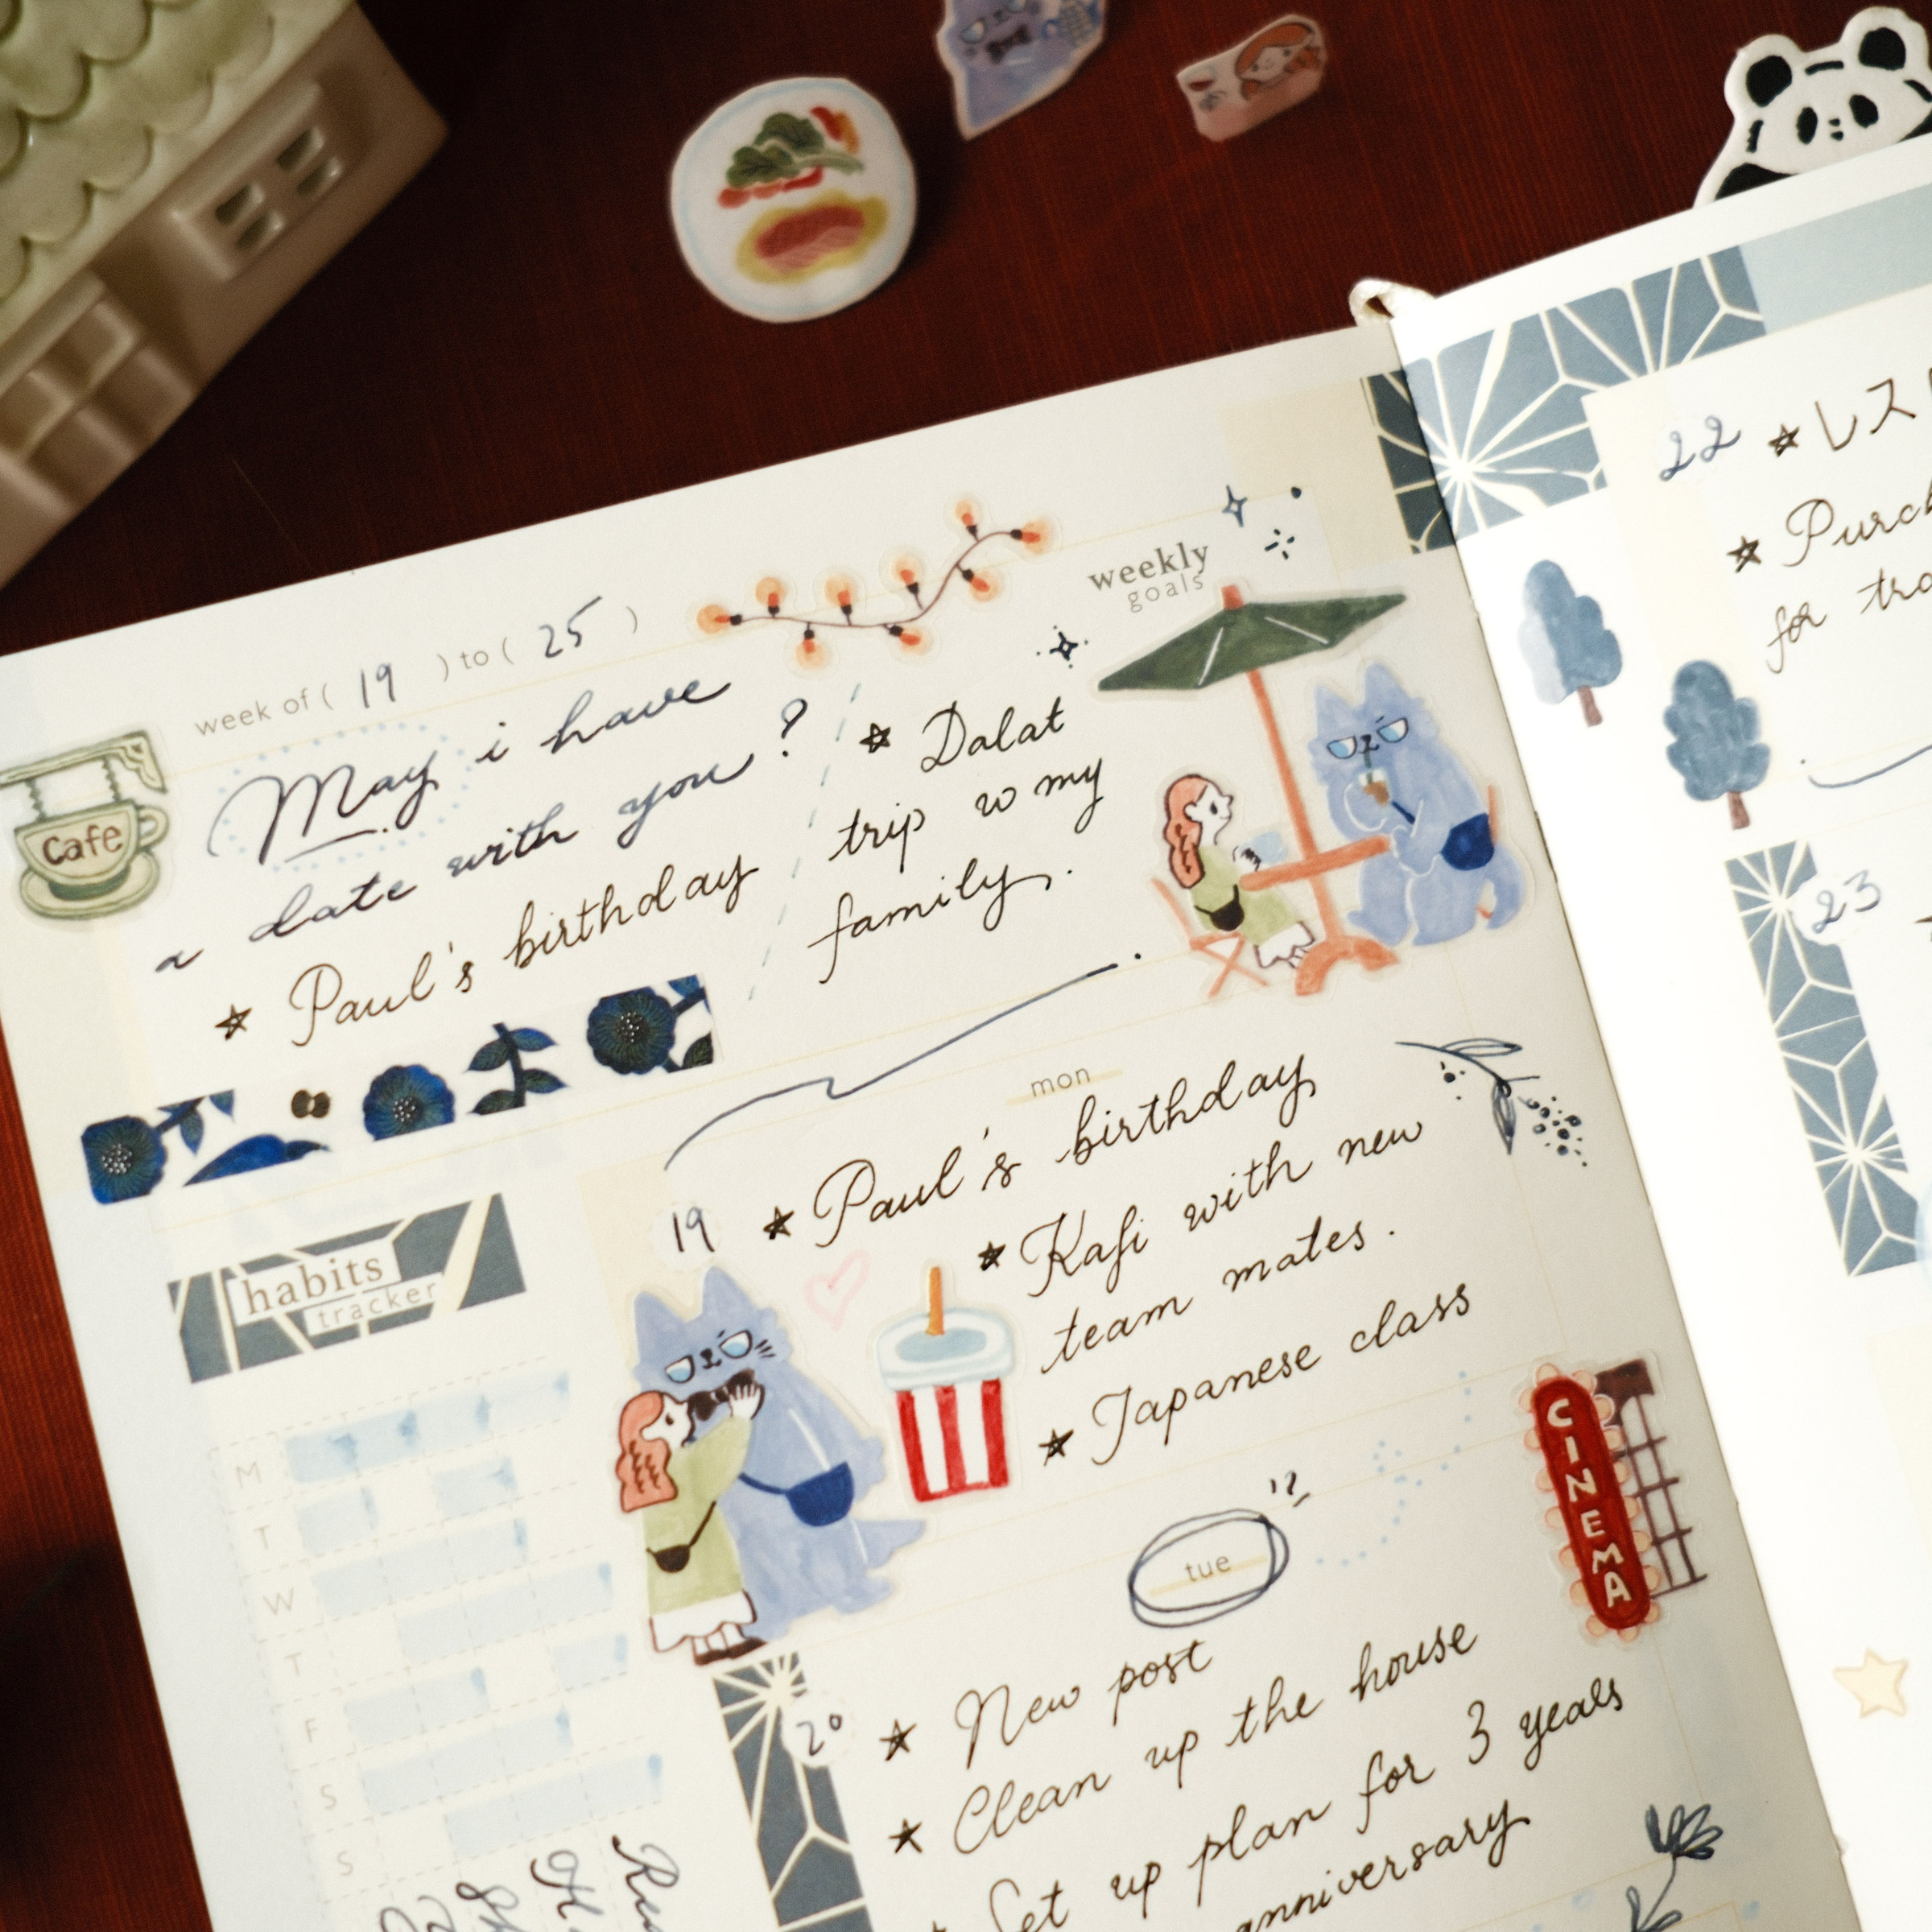 week of ( 19 ) to ( 25 )
weekly
goals
Cafe
May i have
a date with you?
☆ Paul's birthday
☆ Dalat
trip w my
family.
mon
19
☆ Paul's birthday
☆ Kafi with new
team mates.
☆ Japanese class
habits
tracker
M
T
W
T
F
S
S
CINEMA
tue
20
☆ New post
☆ Clean up the house
Set up plan for 3 years
anniversary
22
☆ レス
☆
for
23